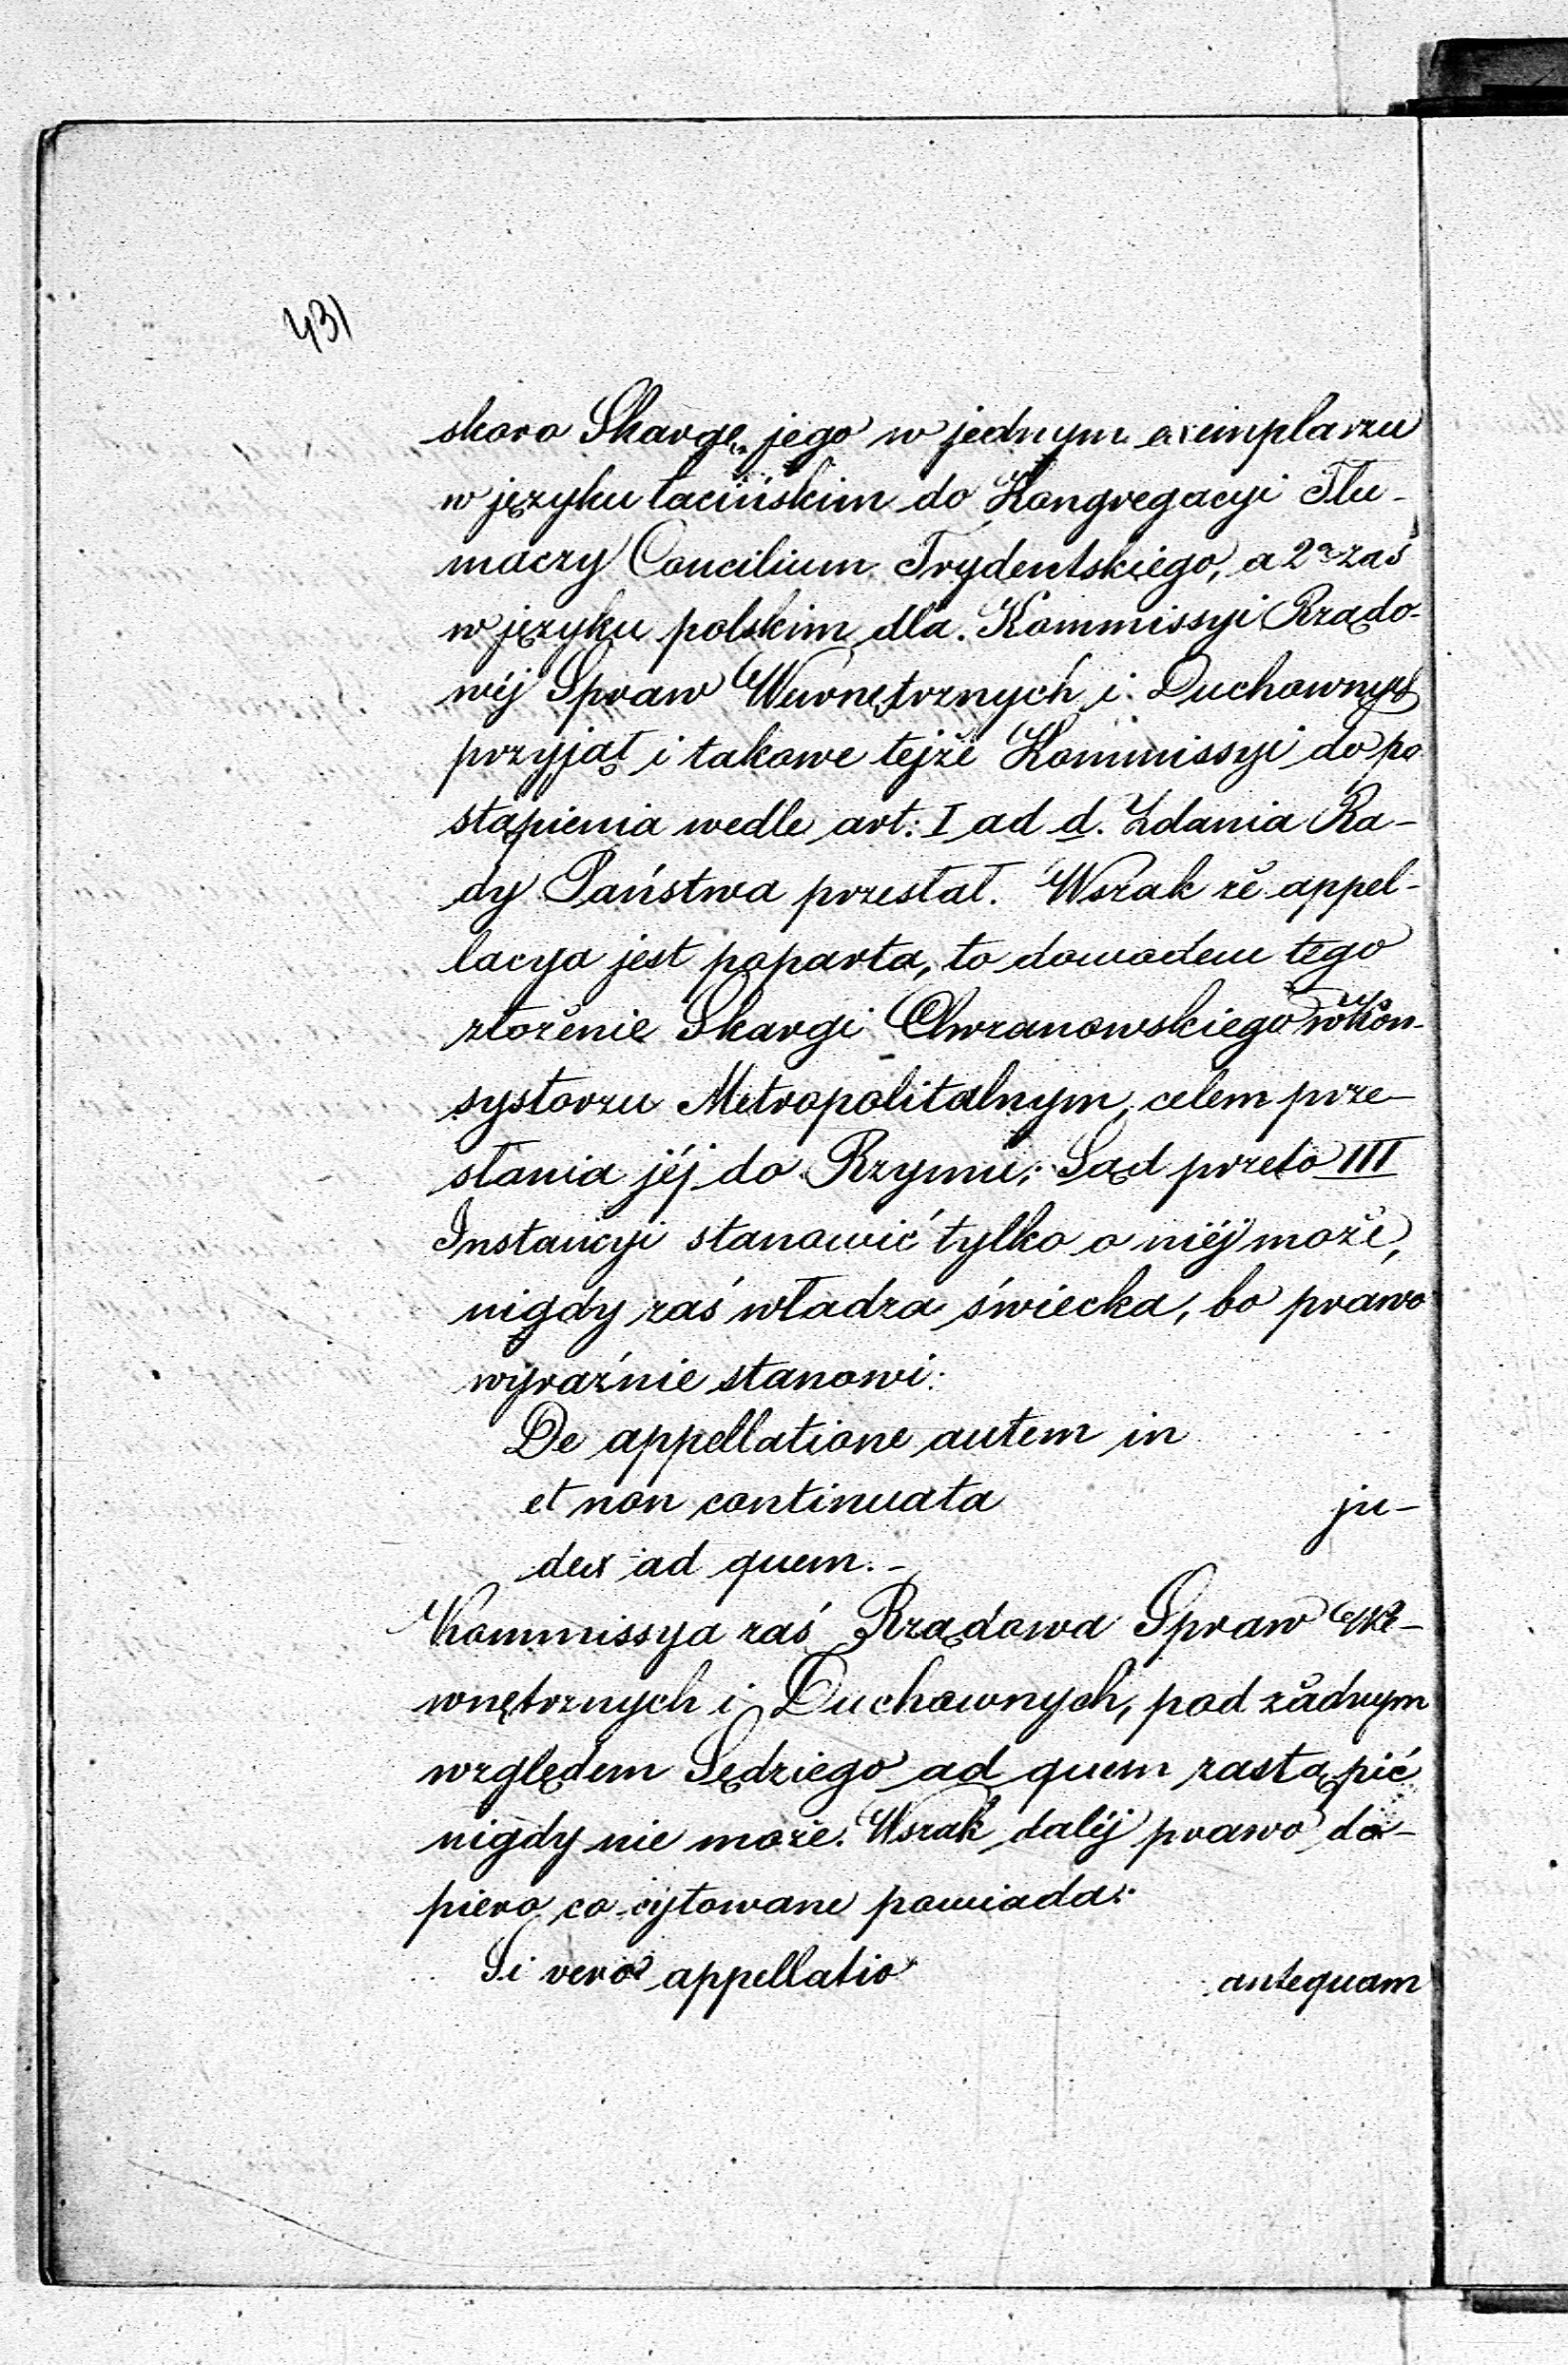 431
skoro Skargę jego w jednym exemplarzu
w języku łacińskim do Kongregacyi Tłu-
maczy Concilium Trydentskiego, a 2<sup>a</sup> zaś
w języku polskim dla Kommissyi Rządo-
wéj Spraw Wewnętrznych i Duchownych
przyjął i takowe tejże Kommissyi do po
stąpienia wedle art: I ad d. Zdania Ra-
dy Państwa przesłał. Wszak że appel-
lacya jest poparta, to dowodem tego
złożenie Skargi Chrzanowskiego w Kon-
systorzu Metropolitalnym, celem prze-
słania jéj do Rzymu; Sąd przeto III
Instancyi stanowić tylko o niéj może,
nigdy zaś władza świecka, bo prawo
wyraźnie stanowi:
De appellatione autem in
et non continuata ju-
dex ad quem.-
Kommissya zaś Rządowa Spraw We-
wnętrznych i Duchownych, pod żadnym
względem Sędziego ad quem zastąpić
nigdy nie może. Wszak daléj prawo do-
piero co cytowane powiada:
Si vero appellatio antequam